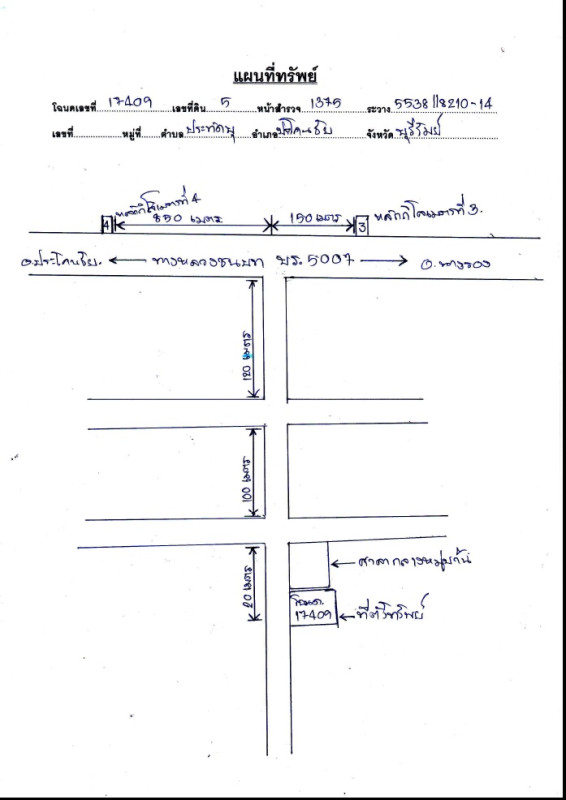 แผนที่ทรัพย์
โฉนดเลขที่ 17409 เลขที่ดิน 5 หน้าสำรวจ 1375 ระวาง 5538 II 8210-14
เลขที่ หมู่ที่ ตำบล ประทัดบุ อำเภอ ประโคนชัย จังหวัด บุรีรัมย์
หลักกิโลเมตรที่ 4
4 850 เมตร 150 เมตร 3 หลักกิโลเมตรที่ 3.
อ.ประโคนชัย. ทางหลวงชนบท บร. 5007 อ. นางรอง
120 เมตร
100 เมตร
ศาลากลางหมู่บ้าน
20 เมตร
โฉนด.
17409 ที่ตั้งทรัพย์